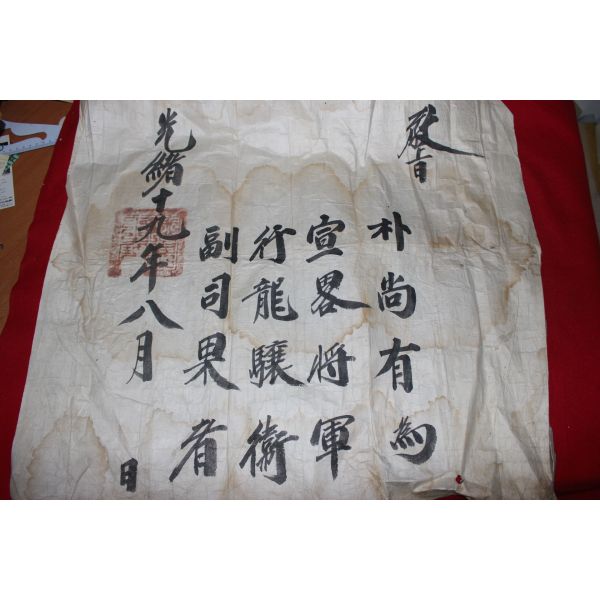 敎旨
朴尚有為
宣畧將軍
行龍驤衛
副司果者
光緖十九年八月 日